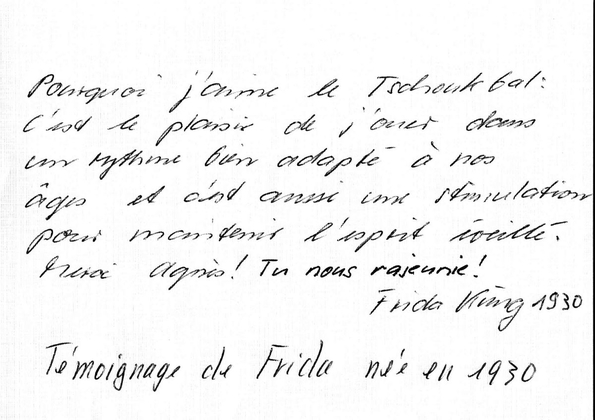 Pourquoi j'aime le Tschoukbal:
C'est le plaisir de jouer dans
un rythme bien adapté à nos
âges et c'est aussi une stimulation
pour maintenir l'esprit éveillé.
Merci Agnès! Tu nous rajeunie!
Frida Küng 1930
Témoignage de Frida née en 1930